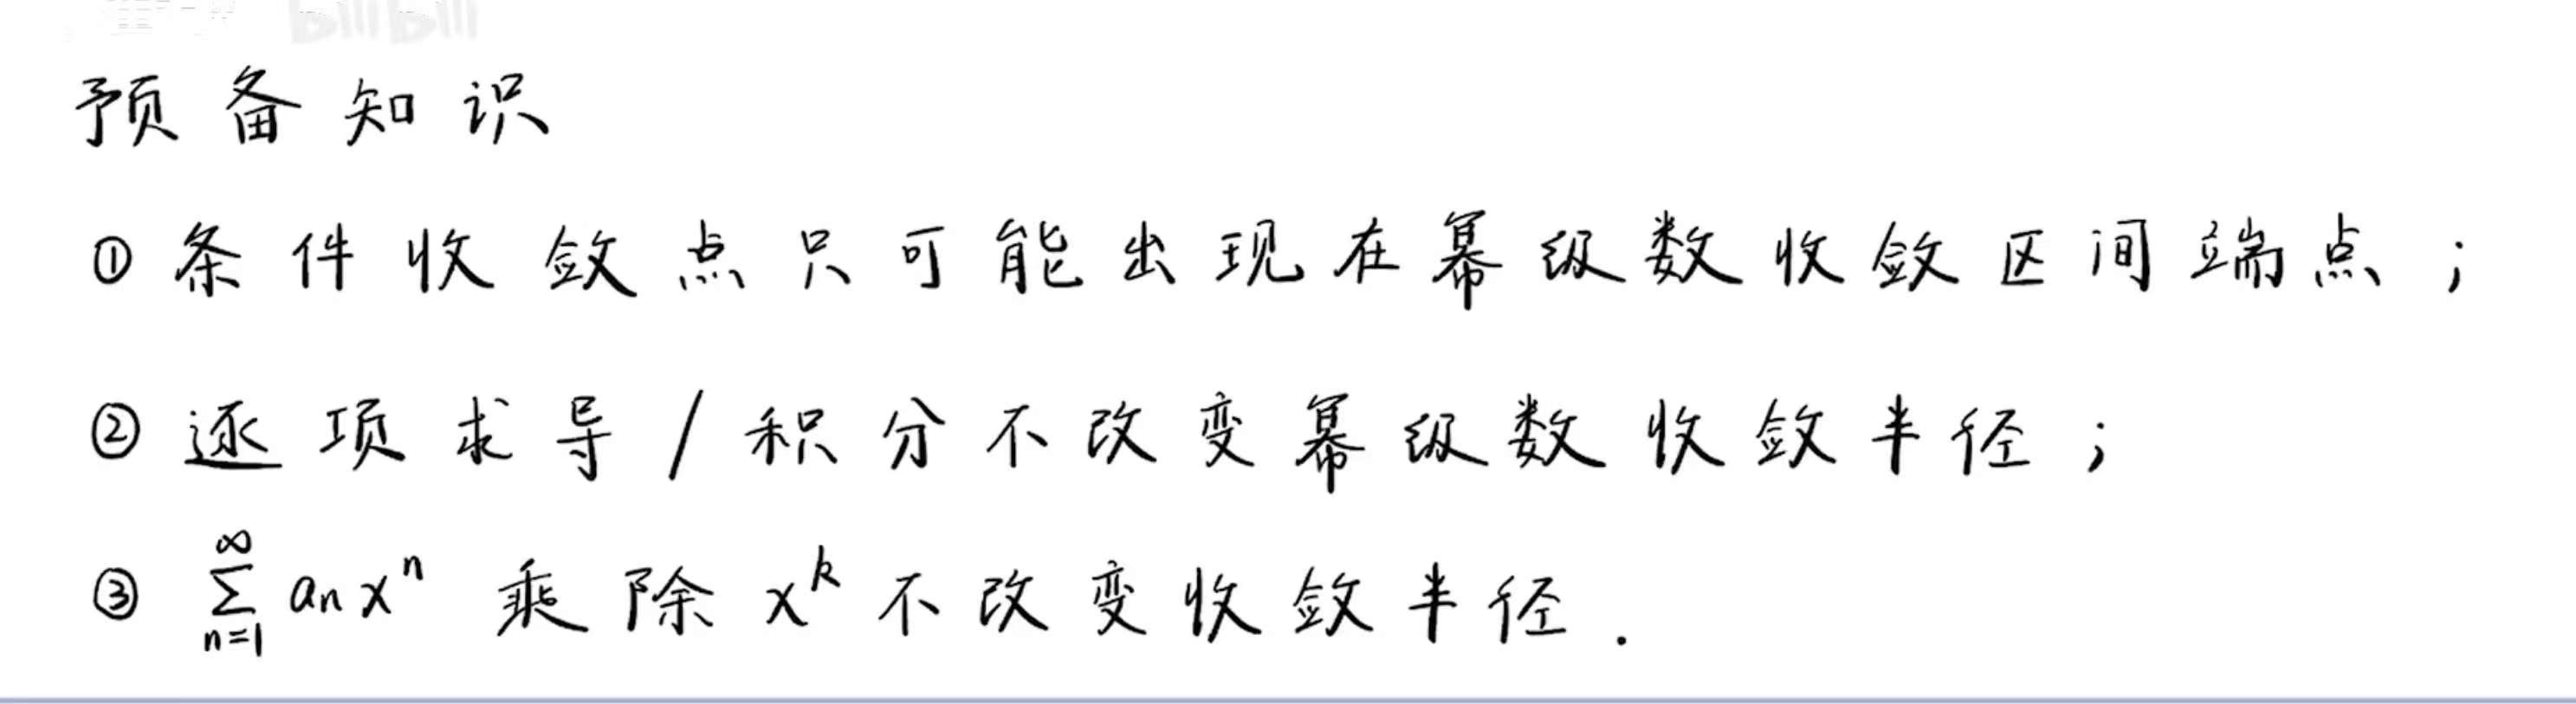 预备知识
① 条件收敛点只可能出现在幂级数收敛区间端点；
② 逐项求导/积分不改变幂级数收敛半径；
③ $\sum_{n=1}^{\infty} a_n x^n$ 乘除 $x^k$ 不改变收敛半径.